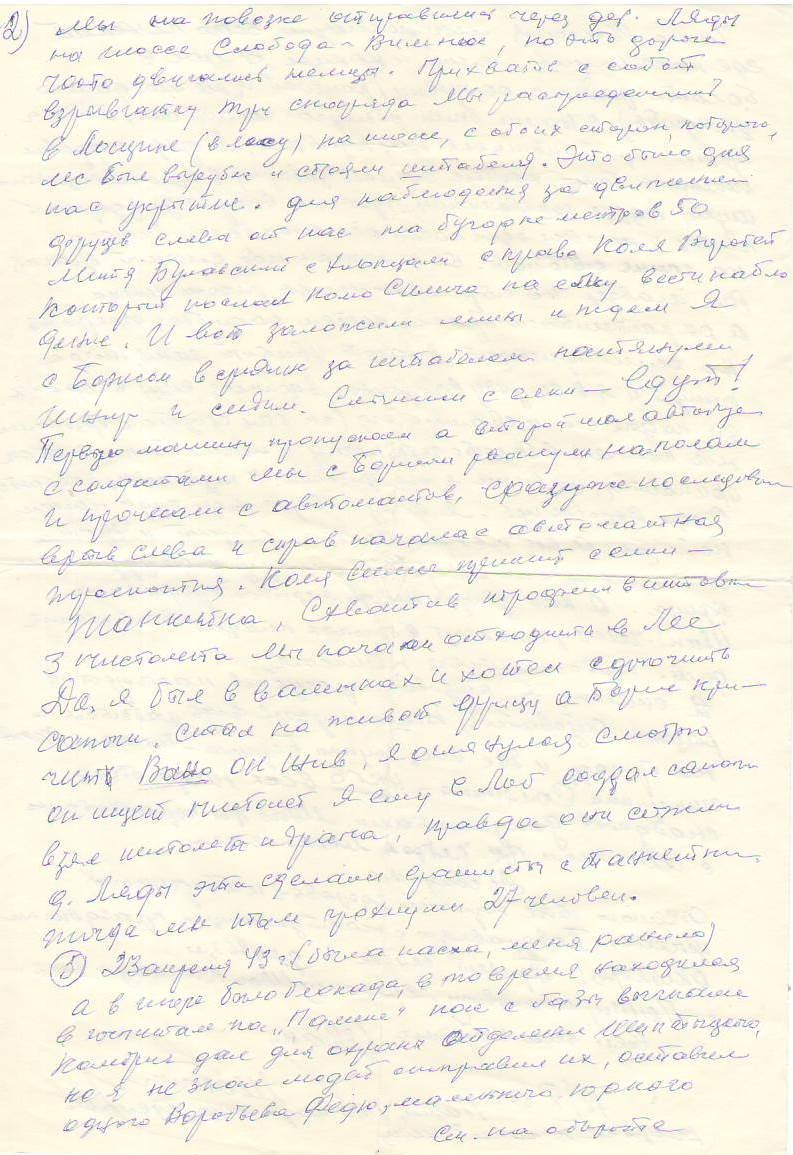 2) Мы на повозке отправились через дер. Ляды
на шоссе Слобода - Вилейка, по эта дороге
часто двигались немцы. Прихватив с собой
взрывчатку три снаряда мы распределились
в Лощине (в лесу) на шоссе, с обоих сторон, которого,
лес был вырублен и стояли штабеля. Это было для
нас укрытие. для наблюдения за движением
фрицев слева от нас на бугорке метров 50
Митя Булавский с хлопцами справа Коля Воробей
который послал Колю Сысоича на елку вести наблю
дение. И вот заложили мины и ждем Я
с Борисом в средине за штабелем натянули
шнур и сидим. Слышим с елки — Едут!
Первую машину пропускаем а второй
с солдатами мы с Борисом рванули на попалам
и прочесали с автоматов, сразу же последовал
взрыв слева и справ началас автоматная
трескотня. Коля кричит с елки —
танкетка, Схватив трофеи винтовки
3 пистолета мы начали отходить в Лес
Да, я был в валенках и хотел сдрючить
сапоги. стал на живот фрицу а Борис кри-
чить Вано он жив, я оглянулся смотрю
он ищет пистолет я ему в Лоб содрал сапоги
взял пистолет и драпа, правда они сожгли
д. Ляды эта сделали фашисты с танкетки,
тогда мы там грохнули 27 человек.
(5) 23 апреля 43 г. (была пасха, меня ранило)
а в июне была блокада, в то время находился
в госпитале на „Палике" нас с базы выгнали
Комбриг дал для охраны отделение
но я не знал людей отправил их, оставил
одного Воробьева Федю, маленького юркого
См. на обороте